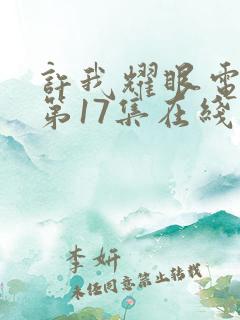 許我耀眼電
第17集在綫
李妍
未经同意禁止转载